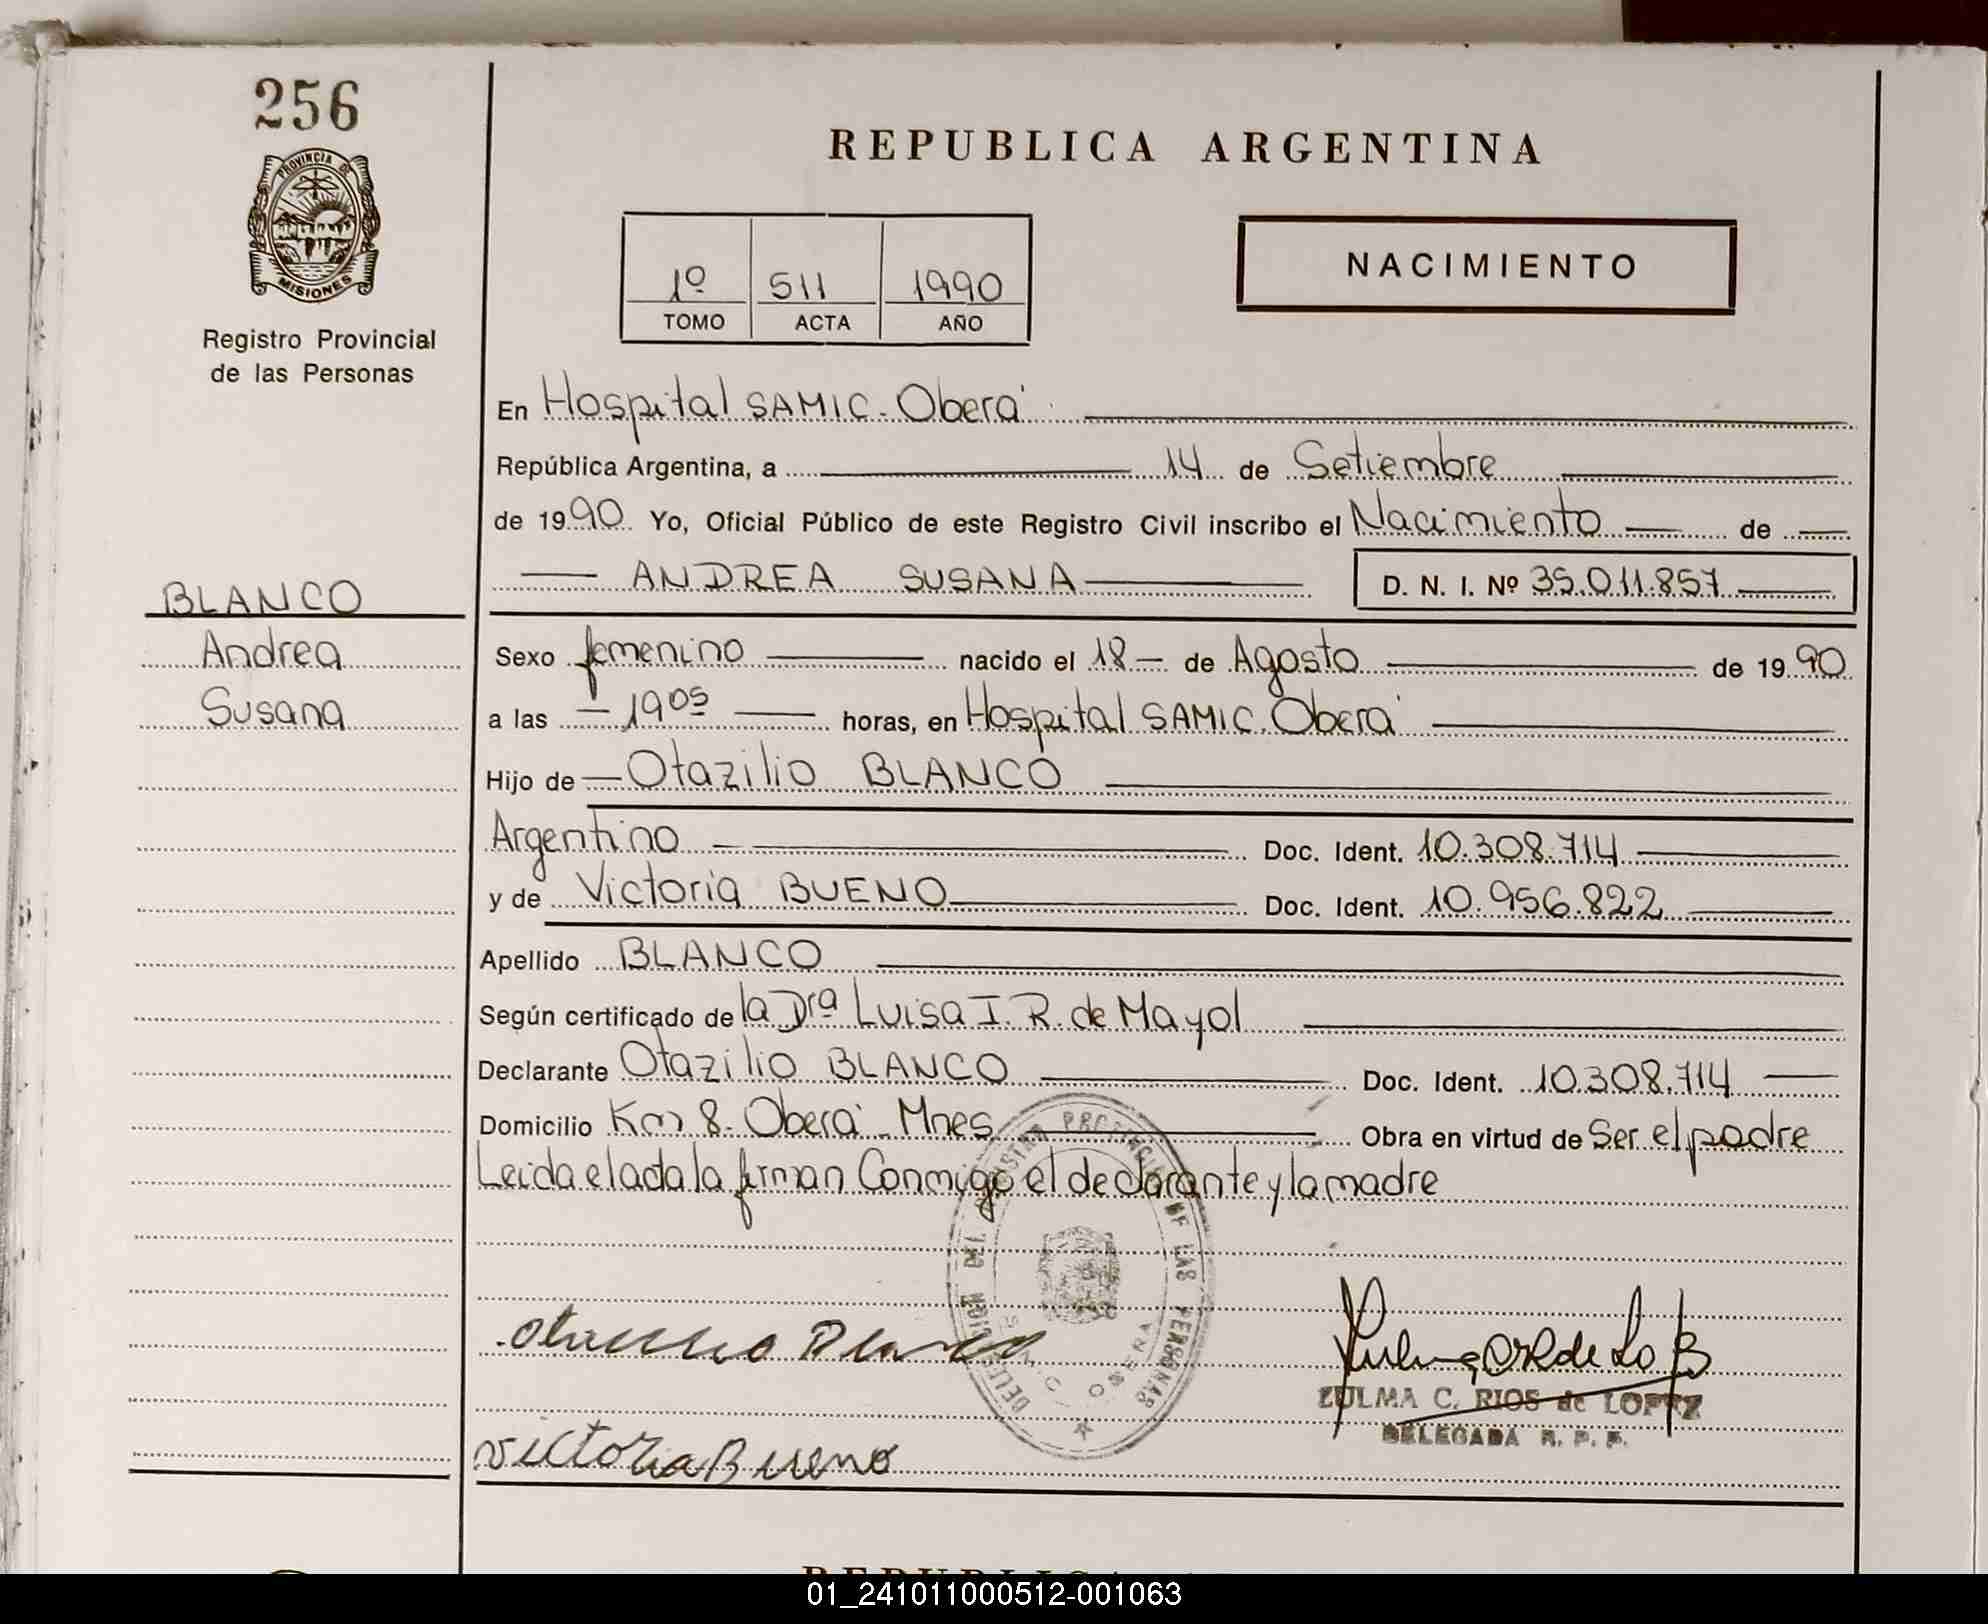 256
PROVINCIA DE
MISIONES
Registro Provincial
de las Personas
BLANCO
Andrea
Susana
REPUBLICA ARGENTINA
1º 511 1990
TOMO ACTA AÑO
NACIMIENTO
En Hospital SAMIC. Oberá
República Argentina, a 14 de Setiembre
de 1990 Yo, Oficial Público de este Registro Civil inscribo el Nacimiento de
ANDREA SUSANA D. N. I. Nº 35.011.857
Sexo femenino nacido el 18 de Agosto de 1990
a las 19⁰⁵ horas, en Hospital SAMIC. Oberá
Hijo de Otazilio BLANCO
Argentino Doc. Ident. 10.308.714
y de Victoria BUENO Doc. Ident. 10.956.822
Apellido BLANCO
Según certificado de la Drª Luisa I. R. de Mayol
Declarante Otazilio BLANCO Doc. Ident. 10.308.714
Domicilio Km 8. Oberá Mnes Obra en virtud de Ser el padre
Leida el acta la firman Conmigo el declarante y la madre
DEL REGISTRO PROVINCIAL DE LAS PERSONAS
OBERA
Blanco
Victoria Bueno
ZULMA C. RIOS de LOPEZ
DELEGADA R. P. P.
01_241011000512-001063